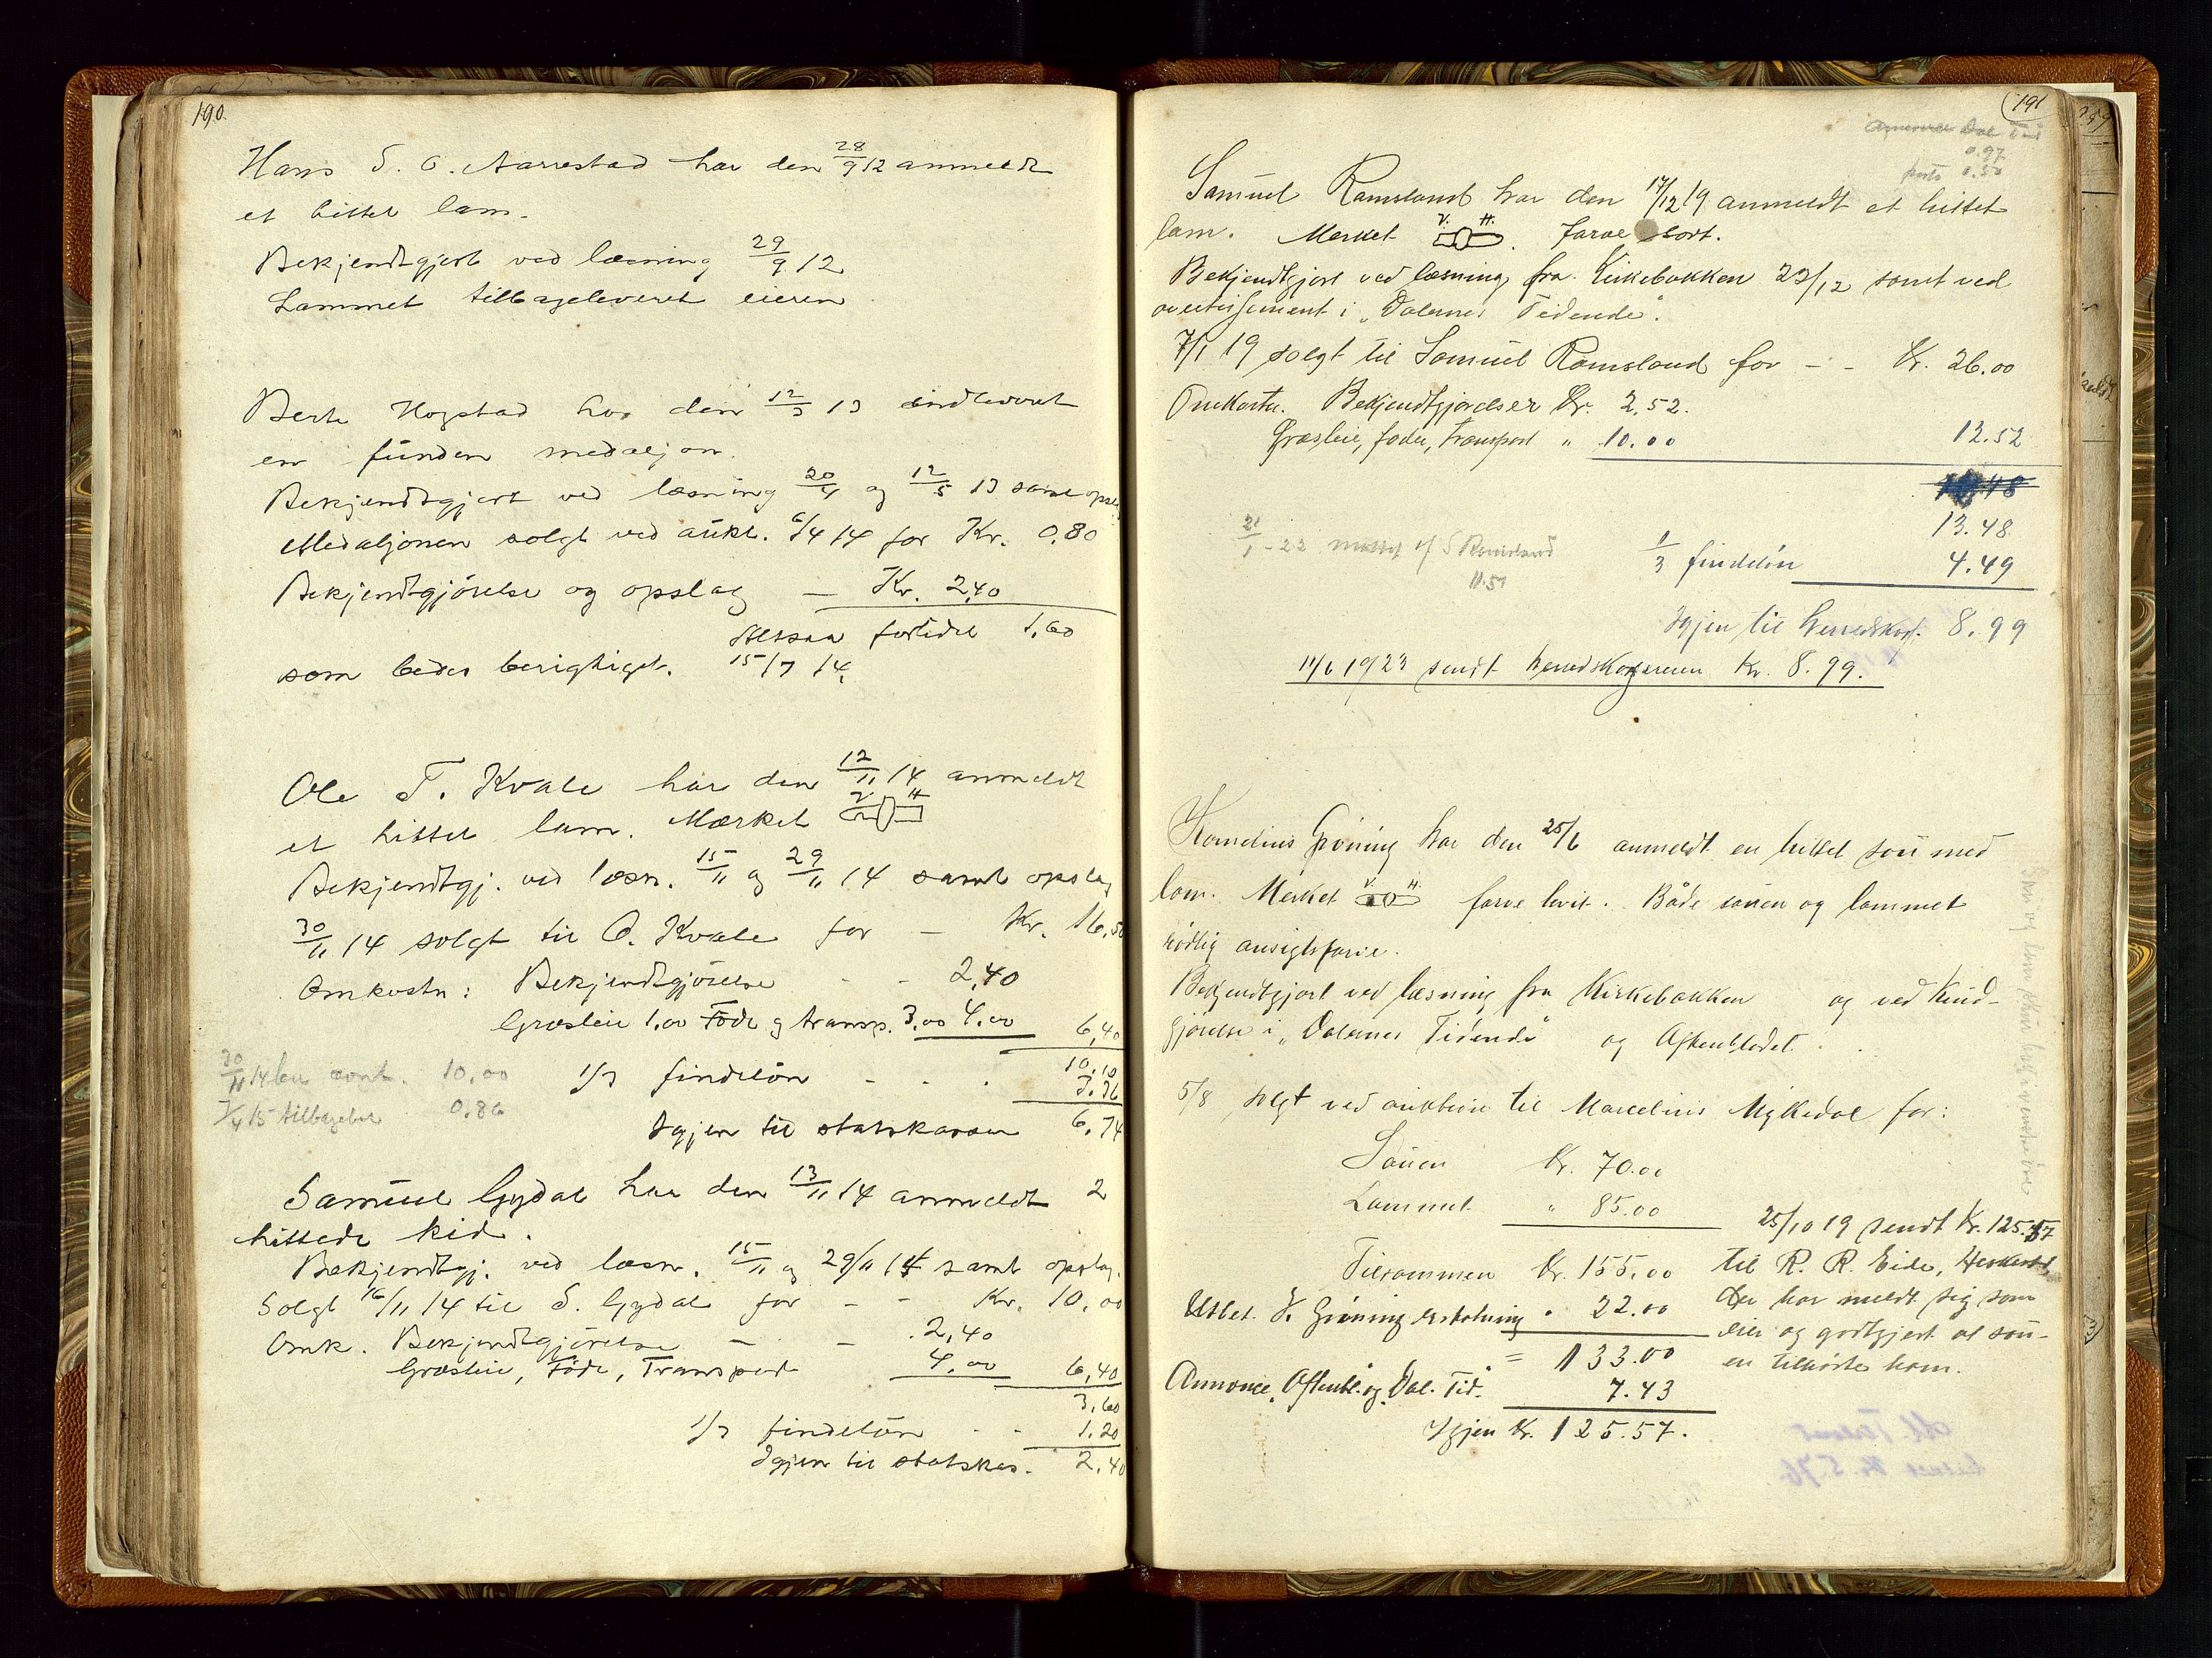 190.
Hans S. O. Aarrestad har den 28/9 12 anmeldt
et hittet lam.
Bekjendtgjort ved læsning 29/9 12
Lammet tilbageleveret eieren
Berte Hogstad har den 12/3 13 indleveret
en funden medaljon.
Bekjendtgjort ved læsning 20/4 og 12/5 13 samt opsl.
Medaljonen solgt ved aukt. 6/4 14 for Kr. 0.80
Bekjendtgjörelse og opslag — Kr. 2,40
Altsaa forlidet 1,60
som bedes berigtiget. 15/7 14.
Ole T. Kvale har den 12/11 14 anmeldt
et hittet lam. Mærket V. H.
Bekjendtgj. ved læsn. 15/11 og 29/11 14 samt opslag
30/11 14 solgt til O. Kvale for — Kr. 16,50
Omkostn: Bekjendtgjörelse - - 2,40
Græsleie 1.00 Föde og transp. 3.00 4.00 6,40
10.10
30/11 14 10.00 1/3 findelön - - . 3.36
7/4 15 tilbagebet 0.86
Igjen til statskassen 6,74
Samuel Gydal har den 13/11 14 anmeldt 2
hittede kid.
Bekjendtgj. ved læsn. 15/11 og 29/11 14 samt opslag.
Solgt 16/11 14 til S. Gydal for - - Kr. 10,00
Omk. Bekjendtgjörelse - - 2,40
Græsleie, Föde, Transport 4,00 6,40
3,60
1/3 findelön - - 1.20
Igjen til statskas. 2,40
191
Dal Tid
0.97
porto 0.50
Samuel Ramsland har den 17/12 19 anmeldt et hittet
lam. Merket V. H. farve sort.
Bekjendtgjort ved læsning fra Kirkebakken 23/12 samt ved
avertissement i „Dalernes Tidende".
7/1 19 solgt til Samuel Ramsland for - - Kr. 26.00
Omkostn. Bekjendtgjørelser Kr. 2.52.
Græsleie, foder, transport " 10.00 12.52
13.48
21/1 - 22 S Ramsland 1/3 findeløn 4.49
11.51
Igjen til herredskas. 8.99
11/6 1923 sendt herredskassereren Kr. 8.99.
Kornelius Grøning har den 25/6 anmeldt en hittet sau med
lam. Merket V. H. farve hvit. Både sauen og lammet
rødlig ansigtsfarve.
Bekjendtgjort ved læsning fra Kirkebakken og ved kund-
gjørelse i „Dalernes Tidende" og Aftenbladet.
5/8 solgt ved auktion til Marcelius Mykedal for:
Sauen Kr. 70.00
Lammet " 85.00
Tilsammen Kr. 155.00
Utbet. K. Grøning erstatning " 22.00
= 133.00
Annonce, Aftenbl. og Dal. Tid. 7.43
Igjen Kr. 125.57.
25/10 19 sendt Kr. 125.57
til R. R. Eide,
Der har meldt sig som
eier og godtgjort at sau-
en tilhørte ham.